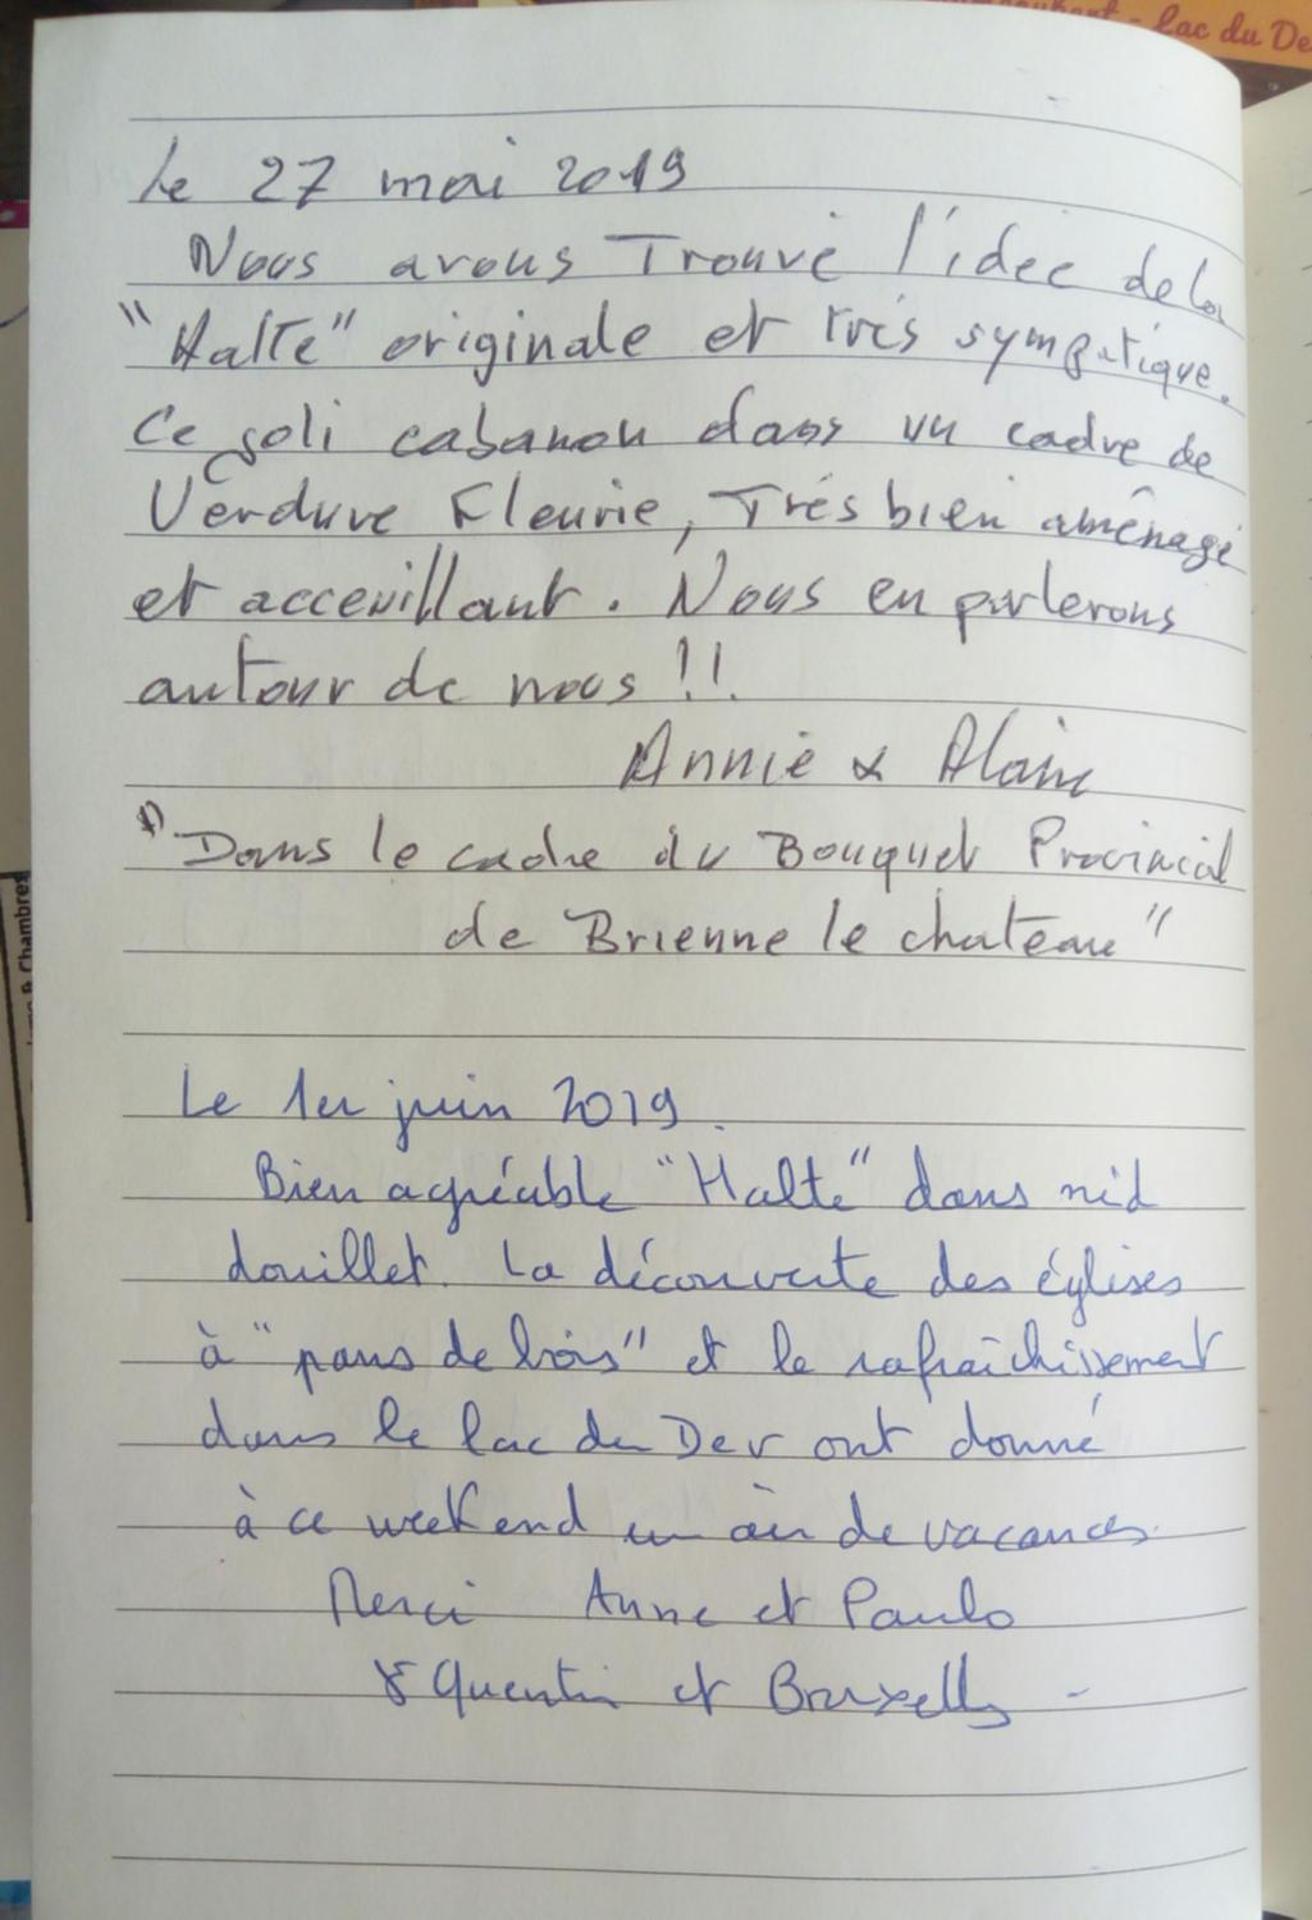 Lac du De
Le 27 mai 2019
Nous avons Trouvé l'idée de la
"Halte" originale et très sympatique.
Ce joli cabanon dans un cadre de
Verdure Fleurie, Très bien aménagé
et acceuillant. Nous en parlerons
autour de nous !!.
Annie & Alain
"Dans le cadre du Bouquet Provincial
de Brienne le chateau"
Le 1er juin 2019.
Bien agréable "Halte" dans nid
douillet. La découverte des églises
à "pans de bois" et le rafraîchissement
dans le lac du Der ont donné
à ce weekend un air de vacances.
Merci Anne et Paulo
Quentin et Bruxelles -
& Chambres